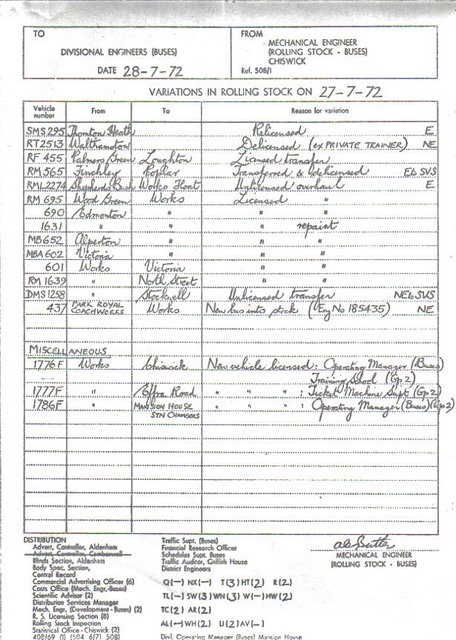 TO
DIVISIONAL ENGINEERS (BUSES)
DATE 28-7-72
FROM
MECHANICAL ENGINEER
(ROLLING STOCK - BUSES)
CHISWICK
Ref. 508/1
VARIATIONS IN ROLLING STOCK ON 27-7-72
Vehicle number From To Reason for variation
SMS 295 Thornton Heath Relicensed E
RT 2513 Walthamstow Delicensed (ex PRIVATE TRAINER) NE
RF 455 Palmers Green Loughton Licensed transfer
RM 565 Finchley Poplar Transferred & delicensed E & SVS
RML 2274 Shepherds Bush Works Float Unlicensed overhaul E
RM 695 Wood Green Works Licensed "
690 Edmonton " " "
1631 " " " repaint
MB 652 Alperton " " "
MBA 602 Victoria " " "
601 Works Victoria " "
RM 1639 " North Street " "
DMS 1258 " Stockwell Unlicensed transfer NE & SVS
437 PARK ROYAL COACHWORKS Works New bus into stock (Eng No 185435) NE
MISCELLANEOUS
1776F Works Chiswick New vehicle licensed: Operating Manager (Buses)
Training School (Gp 2)
1777F " Effra Road " " " : Ticket Machine Supt (Gp 2)
1786F " MANSION HOUSE STN CHAMBERS " " " : Operating Manager (Buses) (Gp 2)
DISTRIBUTION
Advert. Controller, Aldenham
Advert. Controller, Camberwell
Blinds Section, Aldenham
Body Spec. Section,
Central Record
Commercial Advertising Officer (6)
Costs Office (Mech. Engr.-Buses)
Scientific Adviser (2)
Distribution Services Manager
Mech. Engr. (Development - Buses) (2)
R. S. Licensing Section (8)
Rolling Stock Inspection
Statistical Office - Chiswick (2)
Traffic Supt. (Buses)
Financial Research Officer
Schedules Supt. Buses
Traffic Auditor, Griffith House
District Engineers
Q(-) NX(-) T(3) HT(2) R(2)
TL(-) SW(3) WN(3) W(-) HW(2)
TC(2) AR(2)
AL(-) WH(2) U(2) AV(-)
Divl. Operating Manager (Buses) Mansion House
MECHANICAL ENGINEER
(ROLLING STOCK - BUSES)